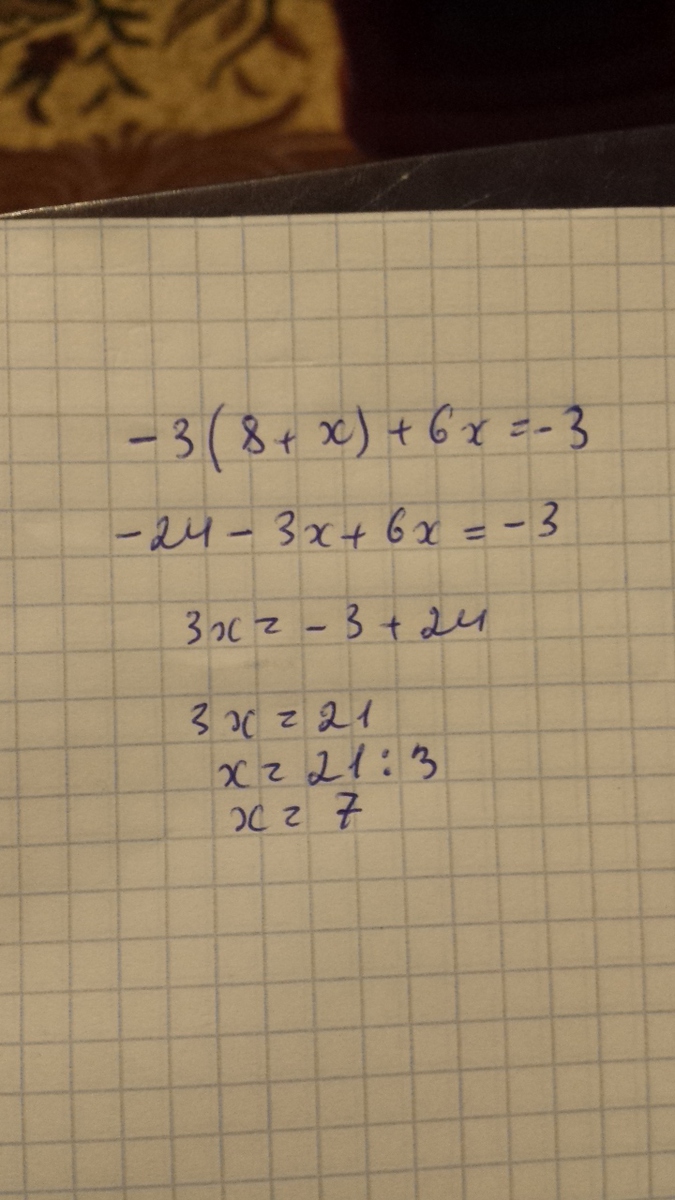 -3(8+x)+6x=-3
-24-3x+6x=-3
3x=-3+24
3x=21
x=21:3
x=7